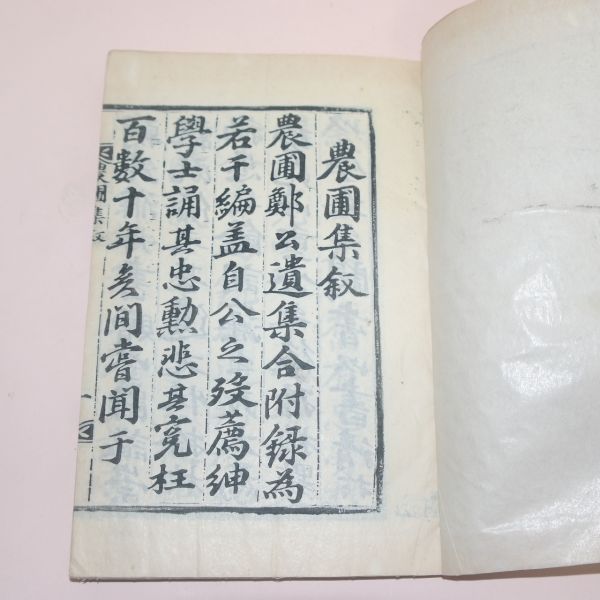 農圃集叙
農圃鄭公遺集合附録為
若干編盖自公之歿薦紳
學士誦其忠勲悲其寃枉
百數十年矣間嘗聞于
農圃集叙
一